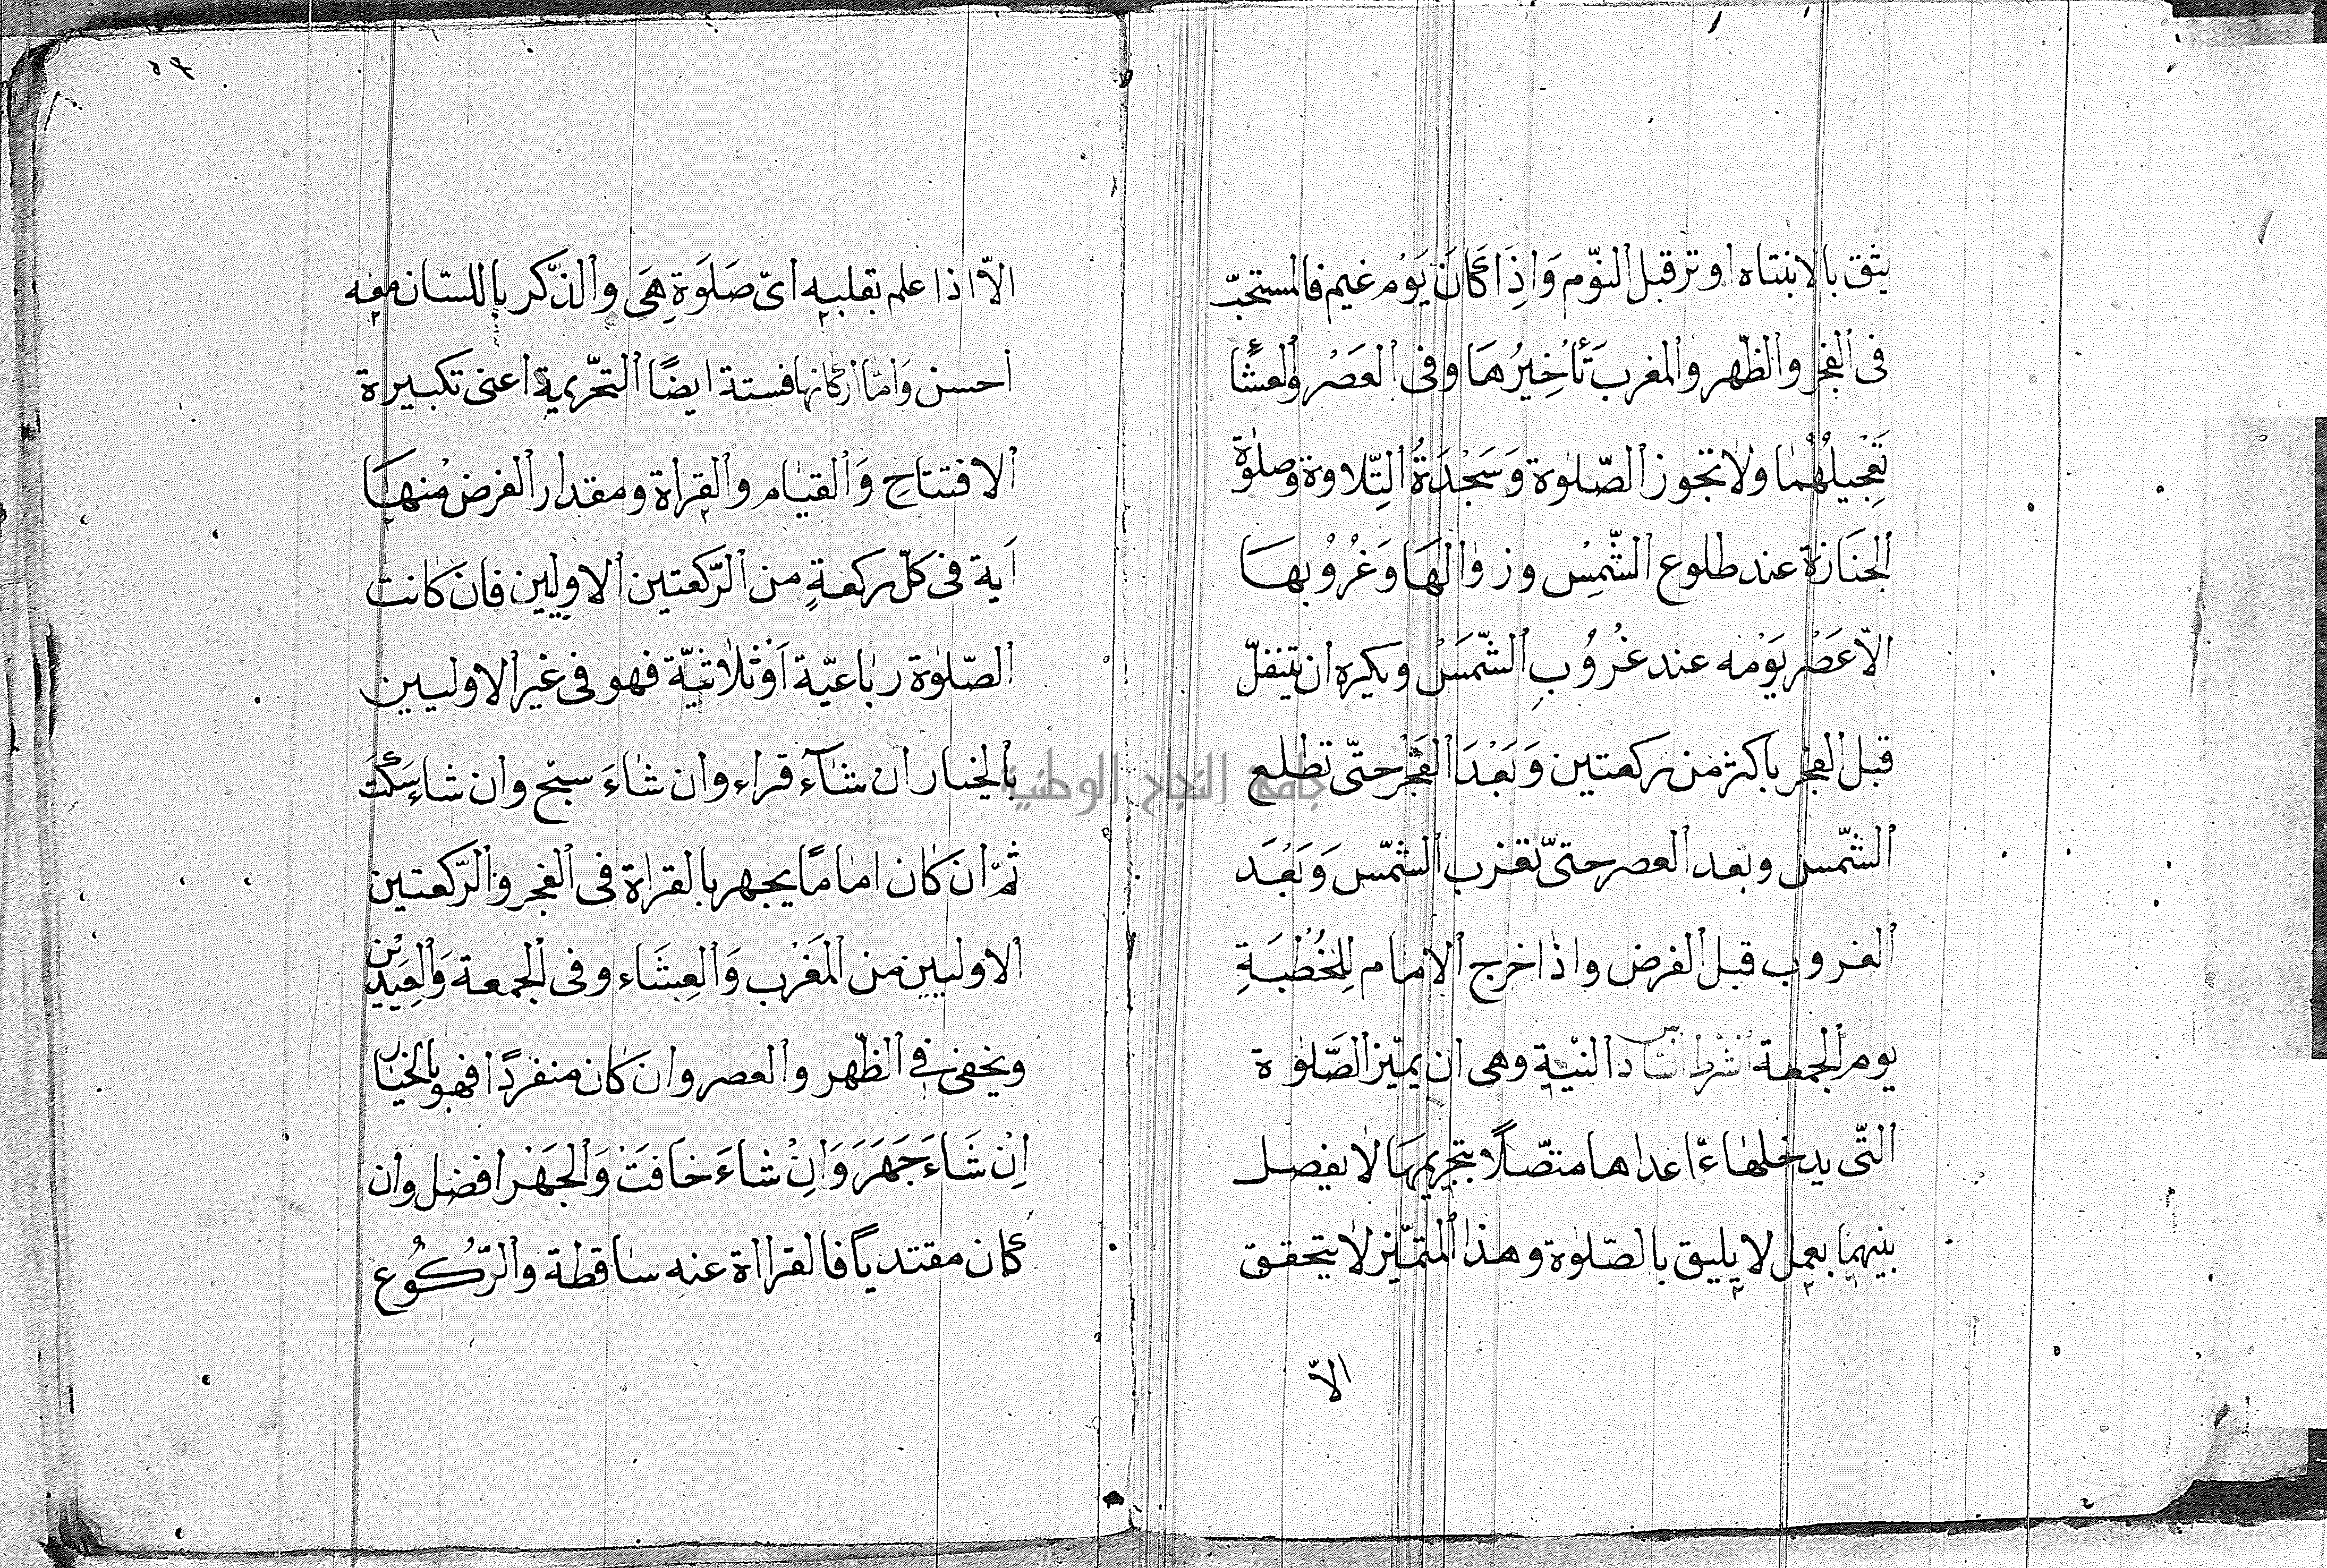 يثق بالانتباه اوتر قبل النّوم وَاِذَا كَانَ يَوْم غيم فالمستحبّ
فى الفجر والظّهر والمغرب تَأخِيرُهَا وفى العَصْر والعشَا
تَعْجِيلُهُمَا ولا تجوز الصّلوة وَسَجْدَةُ التِّلاوة وصلوة
الجنَازة عند طلوع الشّمِسْ وزوالهَا وَغُرُوبهَا
الاّ عَصْر يَوْمه عند غُرُوبِ الشّمَسْ ويكره ان يتنفّل
قبل الفجر باكثر من ركعتين وَبَعْدَ الفَجْر حتّى تطلع
الشّمس وبعد العصر حتىّ تغرب الشمّس وَبَعْدَ
الغروب قبل الفرض واذا خرج الامام لِلخُطْبَةِ
يوم الجمعة الشرط السّادس النيّة وهى ان يميّز الصَّلوة
التّى يدخلها عمّا عداها متصّلاً بتحريمهَا لا يفصل
بينهما بعمل لا يليق بالصّلوة وهذا المتميّز لا يتحقق
الاّ
٥٩
الاّ اذا علم بقلبه اىّ صَلَوَةٍ هِىَ والذّكر باللسّان معه
احسن وَامّا اركانها فستة ايضًا التحّريمة اعنى تكبيرة
الافتتاحِ وَالقيَام والقراة ومقدار الفرض منهَا
اَية فى كلّ ركعةٍ من الرّكعتين الاوليين فان كانت
الصّلوة رباعيّة اَوْ ثلاثيّة فهو فى غير الاوليين
بالخيار ان شآء قراء وان شاءَ سبّح وان شاءَ سَكَتَ
ثمّ ان كان امامًا يجهر بالقراة فى الفجر والرّكعتين
الاوليين من المَغْرب وَالعِشَاء وفى الجمعة وَالعِيدَيْن
ويخفى فى الظّهر والعصر وان كان منفردًا فهو بالخيار
اِنْ شَاءَ جَهَرَ وَاِنْ شاءَ خَافَتْ وَالجَهْر افضل وان
كان مقتديًا فالقرااة عنه ساقطة والرّكُوُع
جامعة النجاح الوطنية